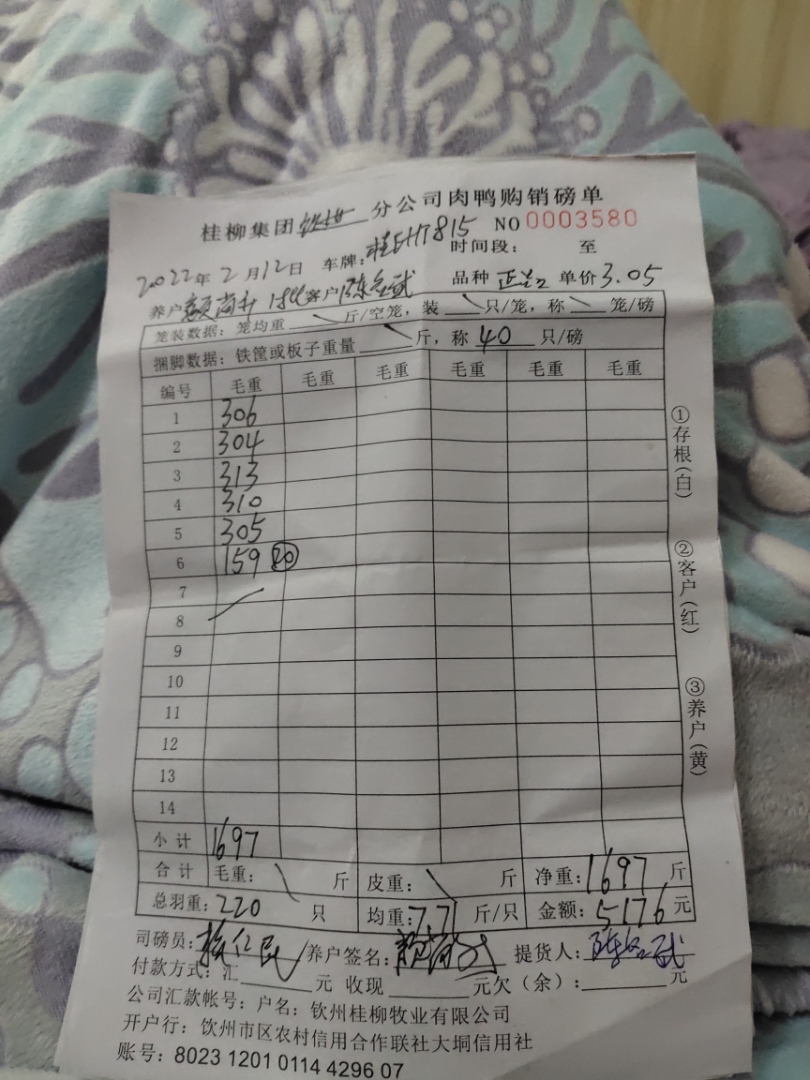 桂柳集团钦州分公司肉鸭购销磅单
NO 0003580
2022年2月12日 车牌:桂EHT815 时间段: 至
养户 客户 陈 武 品种 正 单价3.05
笼装数据:笼均重 斤/空笼,装 只/笼,称 笼/磅
捆脚数据:铁筐或板子重量 斤,称 40 只/磅
编号 毛重 毛重 毛重 毛重 毛重 毛重
1 306
2 304
3 313
4 310
5 305
6 159 20
7
8
9
10
11
12
13
14
小计 1697
合计 毛重: 斤 皮重: 斤 净重:1697斤
总羽重:220 只 均重:7.71 斤/只 金额:5176元
司磅员: 民 养户签名: 提货人:陈 武
付款方式:汇 元 收现 元欠(余): 元
公司汇款帐号:户名:钦州桂柳牧业有限公司
开户行:钦州市区农村信用合作联社大垌信用社
账号:8023 1201 0114 4296 07
①存根(白)
②客户(红)
③养户(黄)